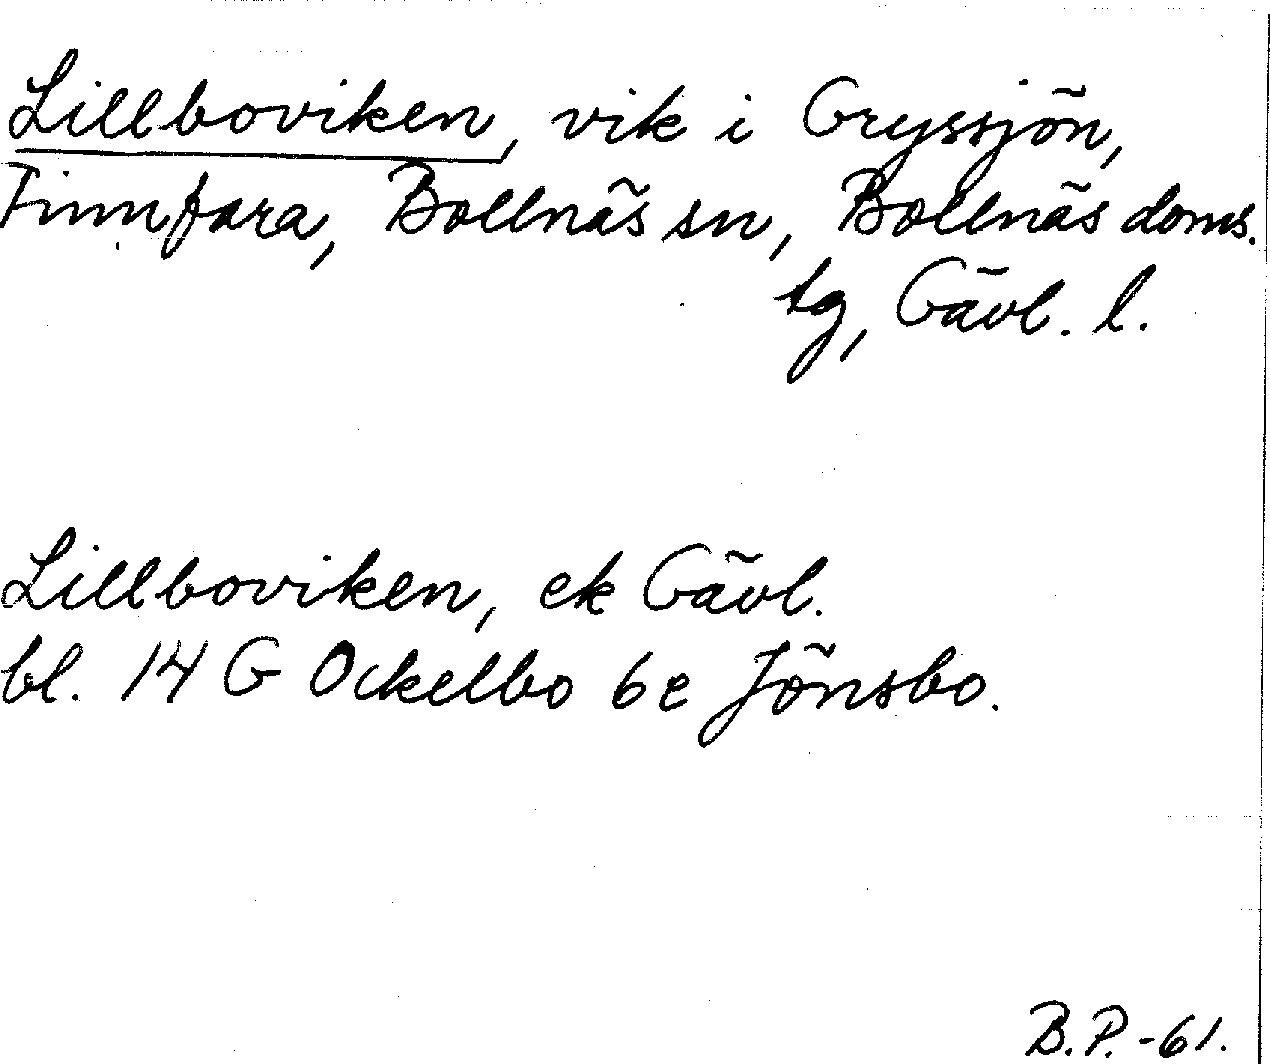 Lillboviken, vik i Gryssjön,
Finnfara, Bollnäs sn, Bollnäs doms.
tg, Gävl. l.
Lillboviken, ek Gävl.
bl. 14 G Ockelbo 6e Jönsbo.
B.P.-61.